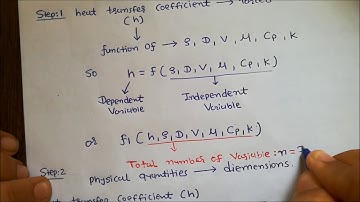 Step:1 heat transfer coefficient →
(h)
function of → ρ, D, V, μ, Cp, K
So h = f (ρ, D, V, μ, Cp, K)
Dependent Independent
Variable Variable
or f1 (h, ρ, D, V, μ, Cp, K)
Total number of Variable: n = 7
Step:2 physical quantities → diemensions.
transfer coefficient (h)